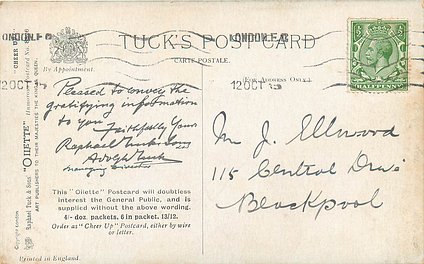 LONDON.E.C
LONDON.E.C
12 OCT
12 OCT 15
TUCK'S POST CARD
CARTE POSTALE.
(FOR ADDRESS ONLY.)
By Appointment.
HALFPENNY
"CHEER UP"
"OILETTE"
Raphael Tuck & Sons'
ART PUBLISHERS TO THEIR MAJESTIES THE KING & QUEEN.
Pleased to convey the
gratifying information
to you
Faithfully Yours
Raphael Tuck & Sons
Adolph Tuck
Managing Director
This "Oilette" Postcard will doubtless
interest the General Public, and is
supplied without the above wording.
4/- doz. packets, 6 in packet. 13/12.
Order as "Cheer Up" Postcard, either by wire
or letter.
Mr J. Ellwood
115 Central Drive
Blackpool
Printed in England.